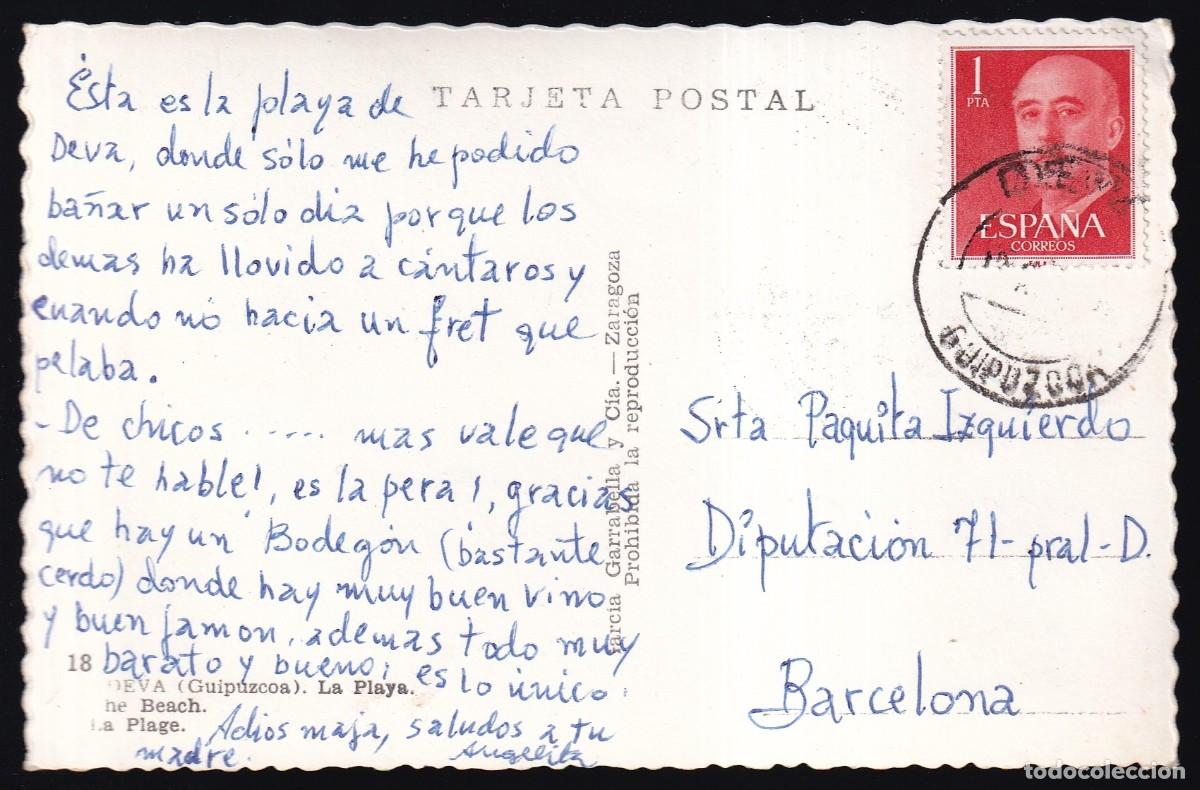 Esta es la playa de
Deva, donde sólo me he podido
bañar un sólo dia porque los
demas ha llovido a cántaros y
cuando nó hacia un fret que
pelaba.
- De chicos ..... mas vale que
no te hable!, es la pera!, gracias
que hay un Bodegón (bastante
cerdo) donde hay muy buen vino
y buen jamon, ademas todo muy
barato y bueno; es lo único.
Adios maja, saludos a tu
madre.
Angelita
18
DEVA (Guipúzcoa). La Playa.
he Beach.
La Plage.
TARJETA POSTAL
García Garrabella y Cía. — Zaragoza
Prohibida la reproducción
1
PTA
ESPAÑA
CORREOS
Guipuzcoa
Srta Paquita Izquierdo
Diputación 71-pral-D.
Barcelona
todocoleccion